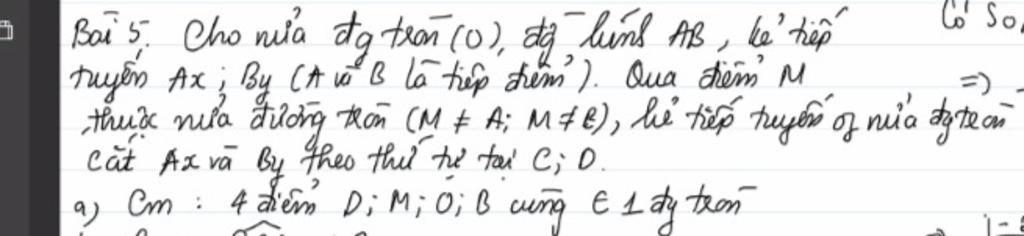 Bài 5. Cho nửa đg tròn (O), đg kính AB, kẻ tiếp
tuyến Ax; By (A và B là tiếp điểm). Qua điểm M
thuộc nửa đường tròn (M ≠ A; M ≠ B), kẻ tiếp tuyến of nửa đg tròn
cắt Ax và By theo thứ tự tại C; D.
a) Cm: 4 điểm D; M; O; B cùng ∈ 1 đg tròn
Có So
=)